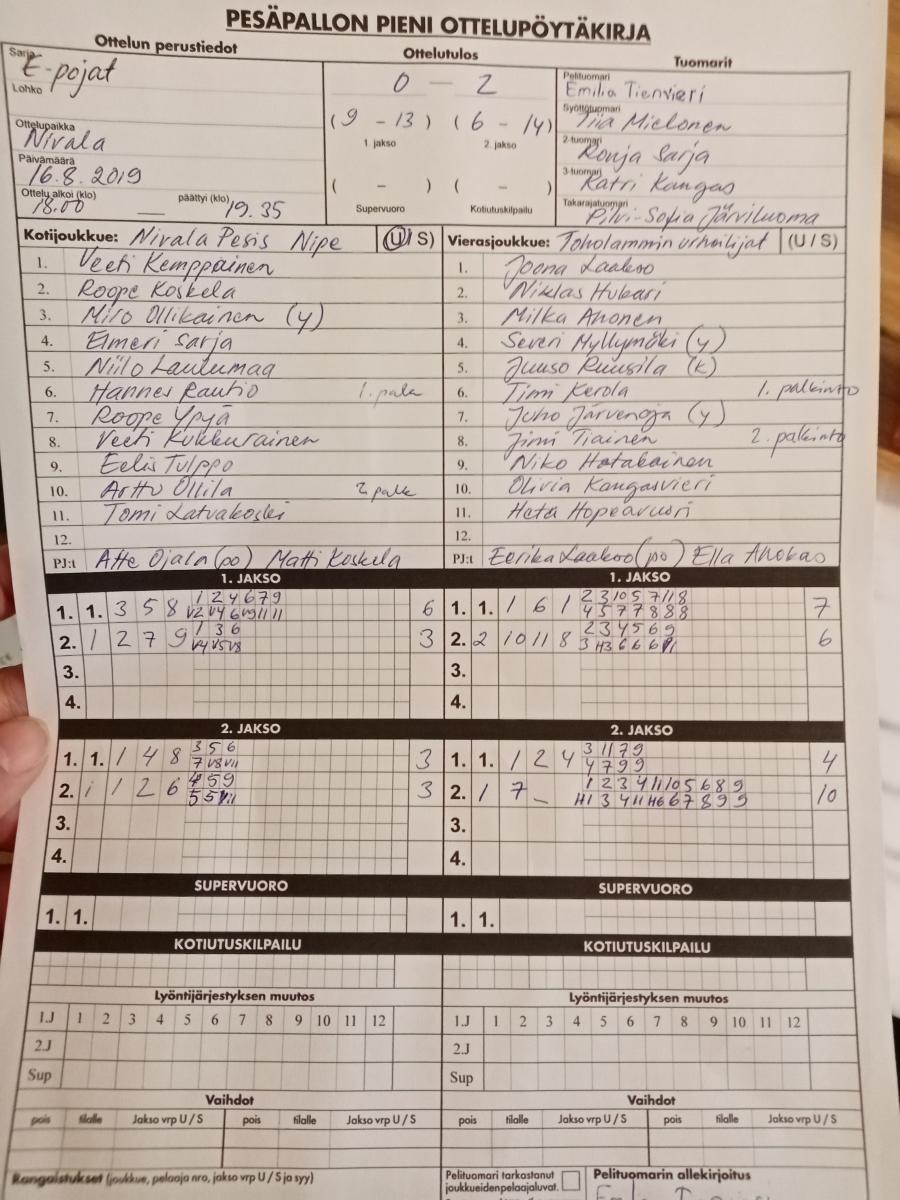 PESÄPALLON PIENI OTTELUPÖYTÄKIRJA
Ottelun perustiedot Ottelutulos Tuomarit
Sarja E-pojat
Lohko
Ottelupaikka Nivala
Päivämäärä 16.8.2019
Ottelu alkoi (klo) 18.00 — päättyi (klo) 19.35
0 – 2
(9 – 13) (6 – 14)
1. jakso 2. jakso
( – ) ( – )
Supervuoro Kotiutuskilpailu
Pelituomari Emilia Tienvieri
Syöttötuomari Tiia Mielonen
2-tuomari Ronja Sarja
3-tuomari Katri Kangas
Takarajatuomari Pilvi-Sofia Järviluoma
Kotijoukkue: Nivala Pesis Nipe (U/S)
1. Veeti Kemppainen
2. Roope Koskela
3. Miro Ollikainen (y)
4. Elmeri Sarja
5. Niilo Laulumaa
6. Hannes Rautio 1. palk
7. Roope Ypyä
8. Veeti Kukkurainen
9. Eelis Tulppo
10. Arttu Ollila 2. palk
11. Tomi Latvakoski
12.
PJ:t Atte Ojala (po) Matti Koskela
Vierasjoukkue: Toholammin urheilijat (U / S)
1. Joona Laakso
2. Niklas Hukari
3. Milka Ahonen
4. Severi Myllymäki (y)
5. Juuso Ruusila (k)
6. Timi Kerola 1. palkinto
7. Juho Järvenoja (y)
8. Jimi Tiainen 2. palkinto
9. Niko Hatakainen
10. Olivia Kangasvieri
11. Heta Hopeavuori
12.
PJ:t Eerika Laakso (po) Ella Ahokas
1. JAKSO
1. 1. 3 5 8 1 2 4 6 7 9 6
V2 V4 6 V9 11 11
2. 1 2 7 9 1 3 6 3
V4 V5 V8
3.
4.
1. JAKSO
1. 1. 1 6 1 2 3 10 5 7 11 8 7
4 5 7 7 8 8 8
2. 2 10 11 8 2 3 4 5 6 9 6
3 H3 6 6 6
3.
4.
2. JAKSO
1. 1. 1 4 8 3 5 6 3
7 V8 V11
2. 1 1 2 6 4 5 9 3
5 5 V11
3.
4.
2. JAKSO
1. 1. 1 2 4 3 11 7 9 4
4 7 9 9
2. 1 7 – 1 2 3 4 11 10 5 6 8 9 10
H1 3 4 11 H6 6 7 8 9 9
3.
4.
SUPERVUORO
1. 1.
SUPERVUORO
1. 1.
KOTIUTUSKILPAILU
KOTIUTUSKILPAILU
Lyöntijärjestyksen muutos
1.J 1 2 3 4 5 6 7 8 9 10 11 12
2.J
Sup
Lyöntijärjestyksen muutos
1.J 1 2 3 4 5 6 7 8 9 10 11 12
2.J
Sup
Vaihdot
pois tilalle Jakso vrp U / S pois tilalle Jakso vrp U / S
Vaihdot
pois tilalle Jakso vrp U / S pois tilalle Jakso vrp U / S
Rangaistukset (joukkue, pelaaja nro, jakso vrp U / S ja syy)
Pelituomari tarkastanut
joukkueidenpelaajaluvat.
Pelituomarin allekirjoitus